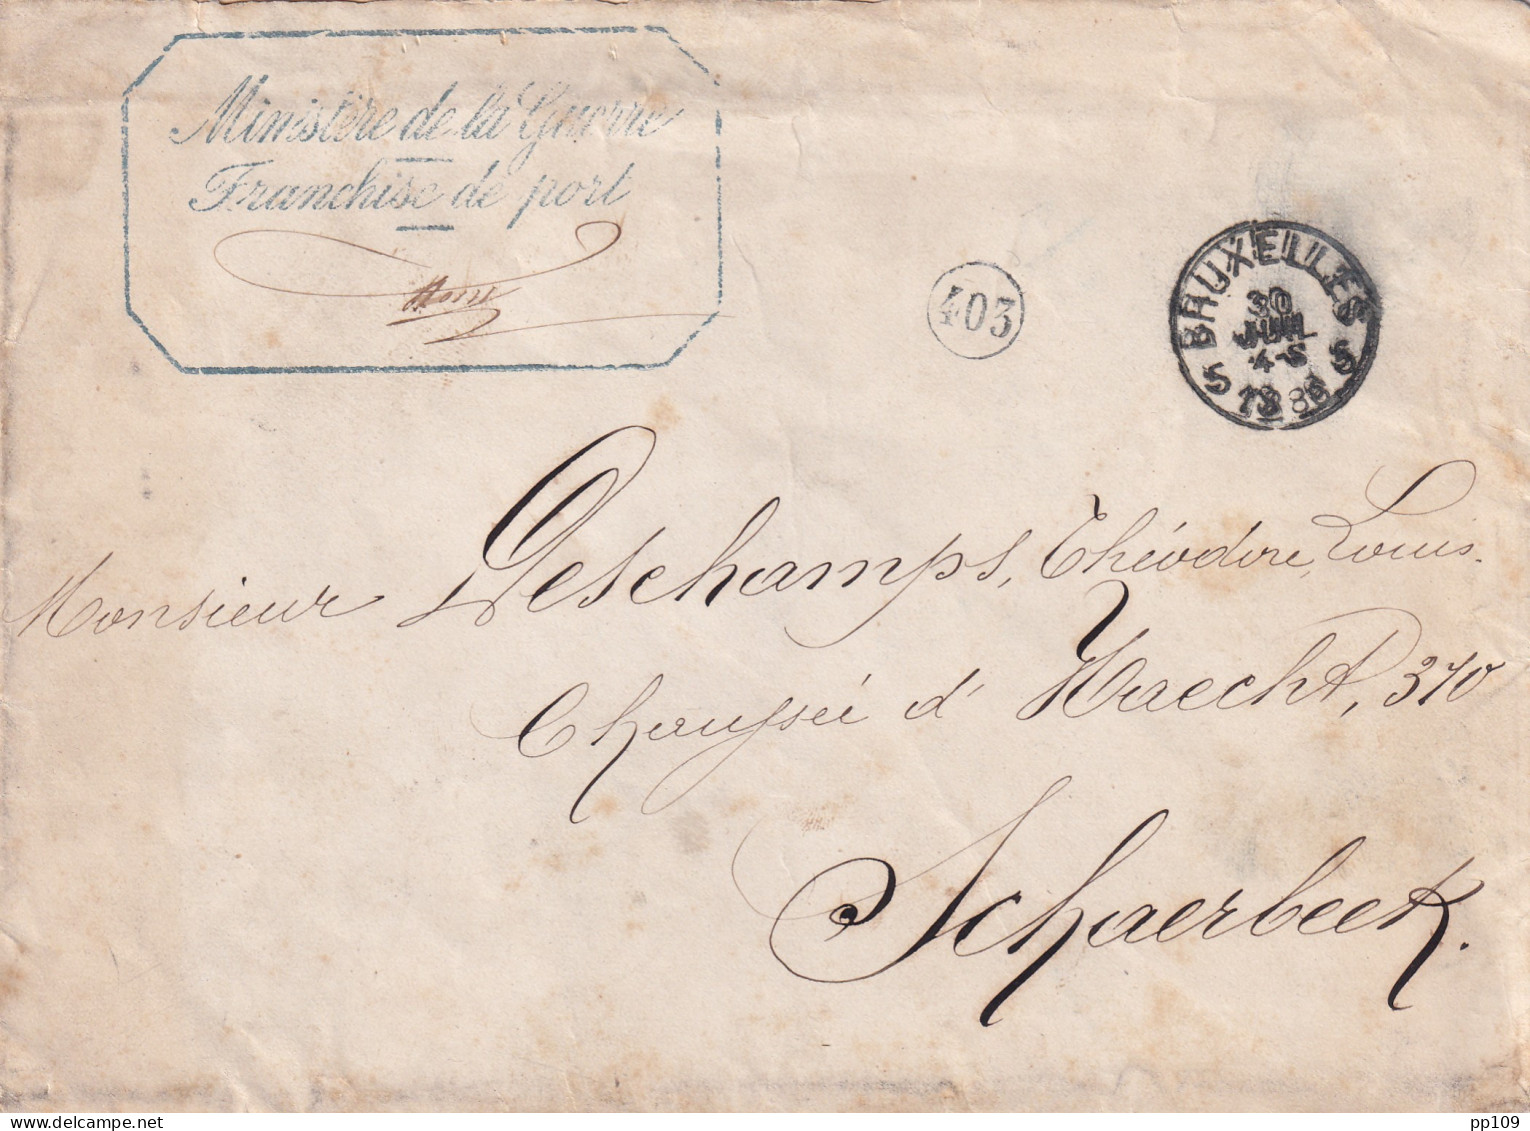 Ministère de la Guerre
Franchise de port
403
BRUXELLES
30
JUIL
4-S
5 1886 5
Monsieur Deschamps, Théodore, Louis.
Chaussée d' Haecht, 370
Schaerbeek.
pp109